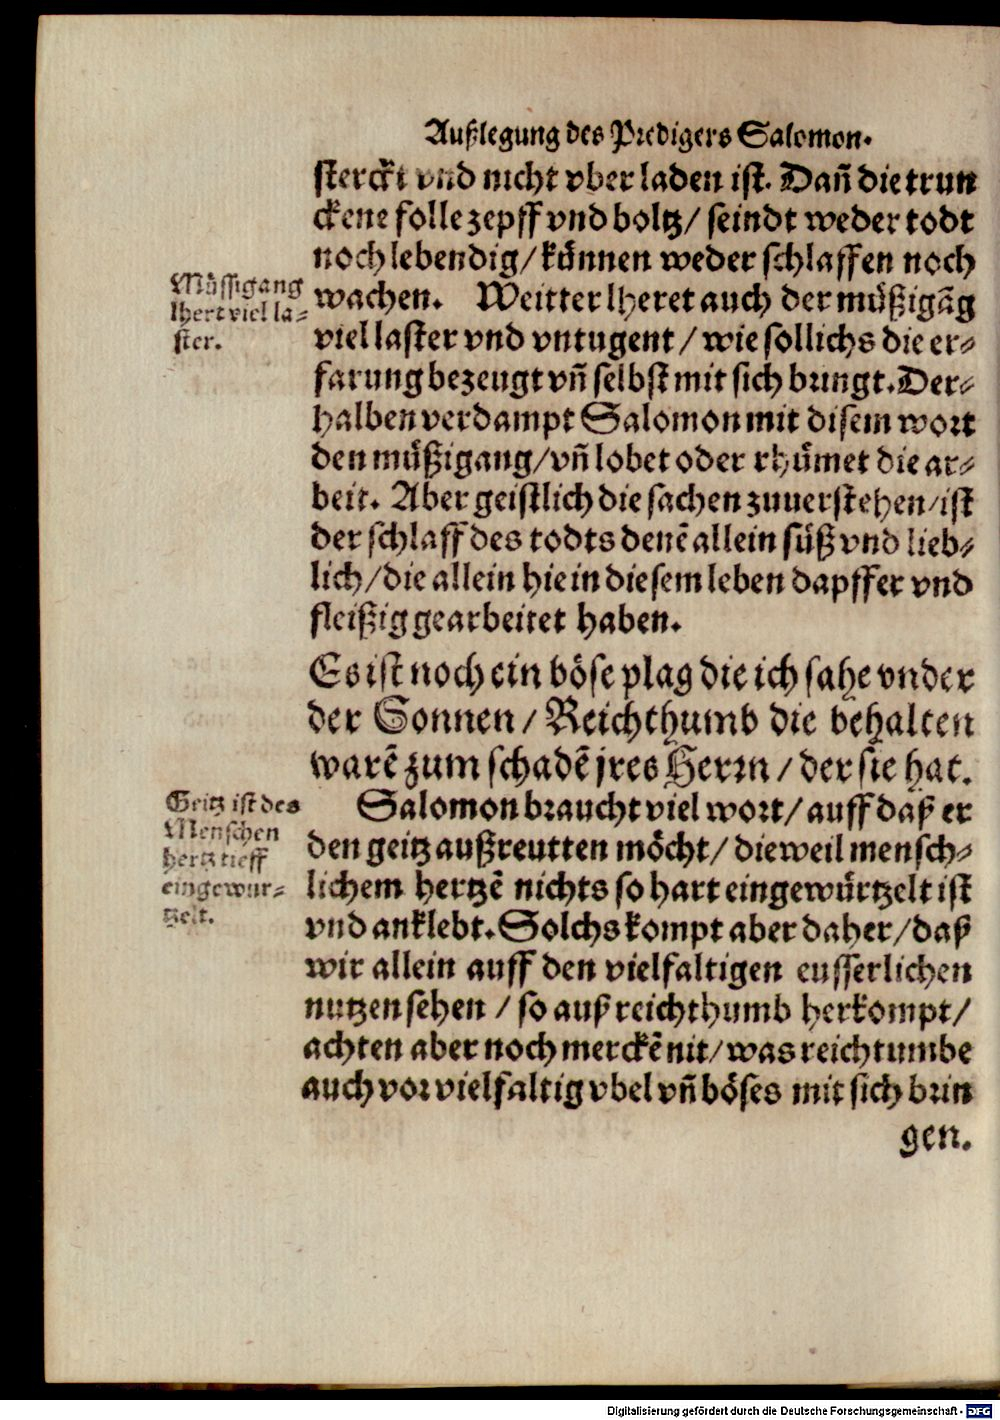 Außlegung des Predigers Salomon.
sterckt vnd nicht vberladen ist. Dañ die trun
ckene folle zepff vnd boltz/ seindt weder todt
noch lebendig/ können weder schlaffen noch
wachen. Weitter lheret auch der müßigãg
viel laster vnd vntugent/ wie sollichs die er-
farung bezeugt vñ selbst mit sich bringt. Der-
halben verdampt Salomon mit disem wort
den müßigang/ vñ lobet oder rhümet die ar-
beit. Aber geistlich die sachen zuuerstehen/ ist
der schlaff des todts denẽ allein süß vnd lieb-
lich/ die allein hie in diesem leben dapffer vnd
fleißig gearbeitet haben.
Müssigang
lhert viel la-
ster.
Es ist noch ein böse plag die ich sahe vnder
der Sonnen/ Reichthumb die behalten
warẽ zum schadẽ jres Herrn/ der sie hat.
Salomon braucht viel wort/ auff daß er
den geitz außreutten möcht/ dieweil mensch-
lichem hertzẽ nichts so hart eingewürtzelt ist
vnd anklebt. Solchs kompt aber daher/ daß
wir allein auff den vielfaltigen eusserlichen
nutzen sehen/ so auß reichthumb herkompt/
achten aber noch merckẽ nit/ was reichtumbe
auch vor vielfaltig vbel vñ böses mit sich brin
gen.
Geitz ist des
Menschen
hertz tieff
eingewur-
tzelt.
Digitalisierung gefördert durch die Deutsche Forschungsgemeinschaft - DFG